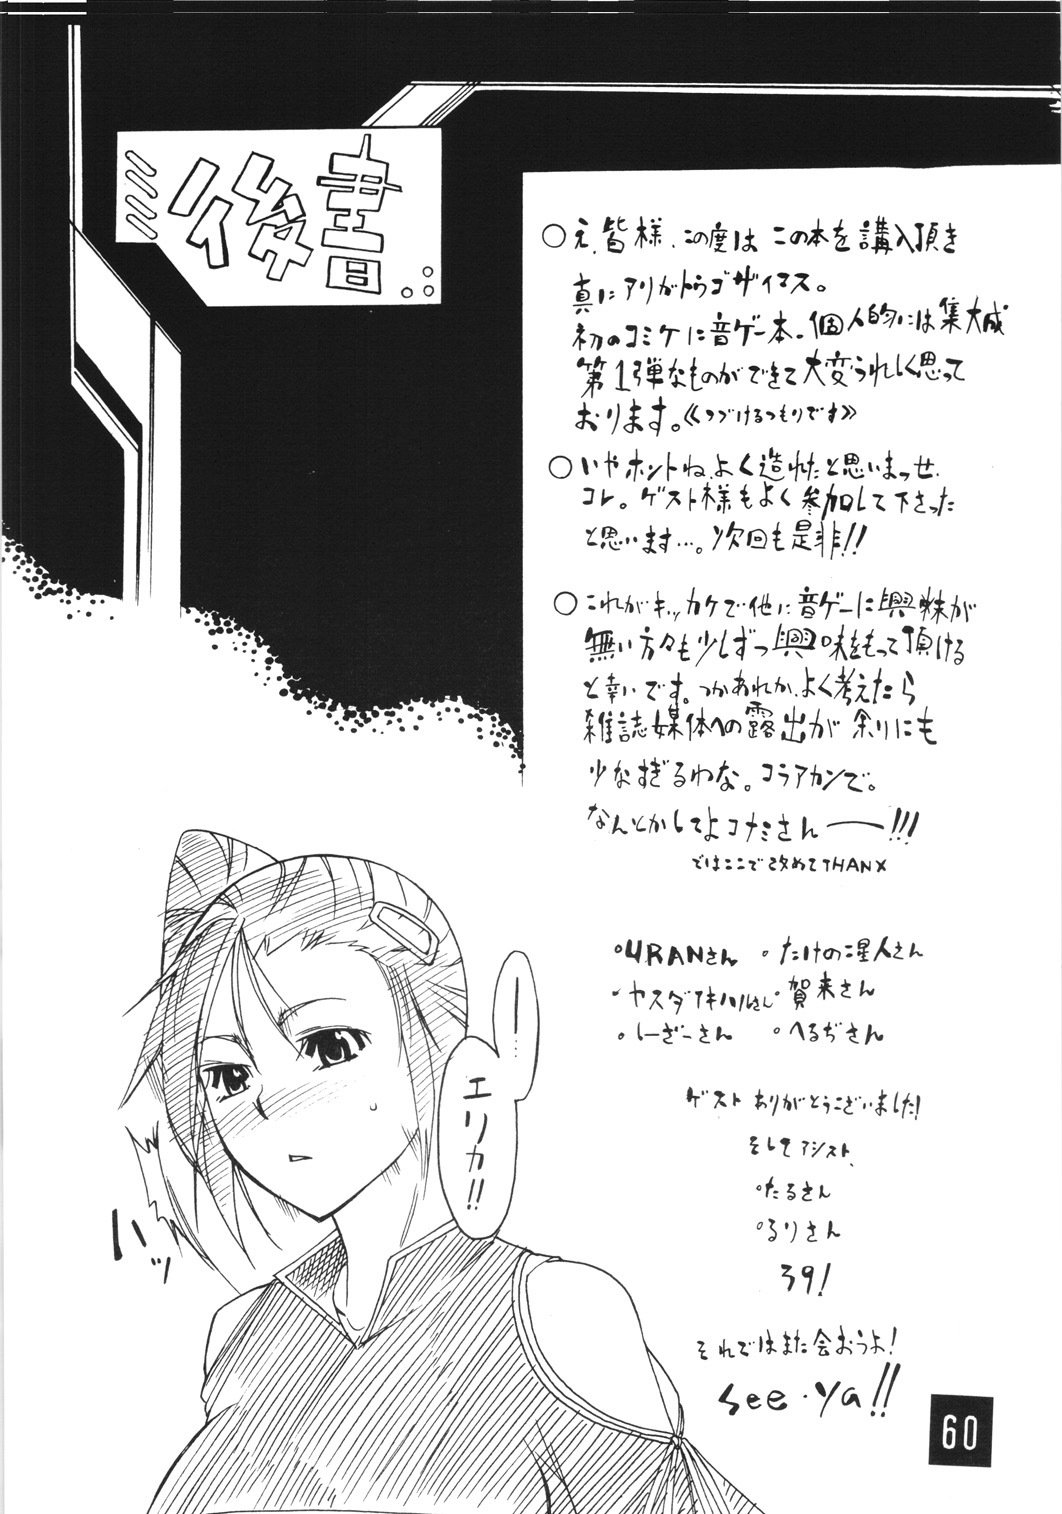 後書
○え、皆様、この度は この本を講入頂き
真に アリがトウゴザイマス。
初のコミケに音ゲー本-個人的には集大成
第1弾なものができて大変うれしく思って
おります。《つづけるつもりです》
○いやホントね、よく造れたと思いまっせ、
コレ。ゲスト様もよく参加して下さった
と思います…。次回も是非!!
○これがキッカケで他に音ゲーに興味が
無い方々も少しずつ興味をもって頂ける
と幸いです。つかあれか、よく考えたら
雑誌媒体への露出が余りにも
少なすぎるわな。コラアカンで。
なんとかしてよコナミさん――!!!
ではここで改めてTHANX
・URANさん ・たけのこ星人さん
・ヤスダアキハルさん ・賀来さん
・しーざーさん ・へるぢさん
ゲスト ありがとうございました!
そしてアシスト、
・たるさん
・るりさん
39!
それではまた会おうよ!
see・ya!!
ー…
エリカ!!
ハッ
60